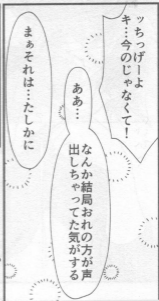 っちっげーよ
キ…今のじゃなくて！
ああ…
なんか結局おれの方が声
出しちゃってた気がする
まぁそれは…たしかに